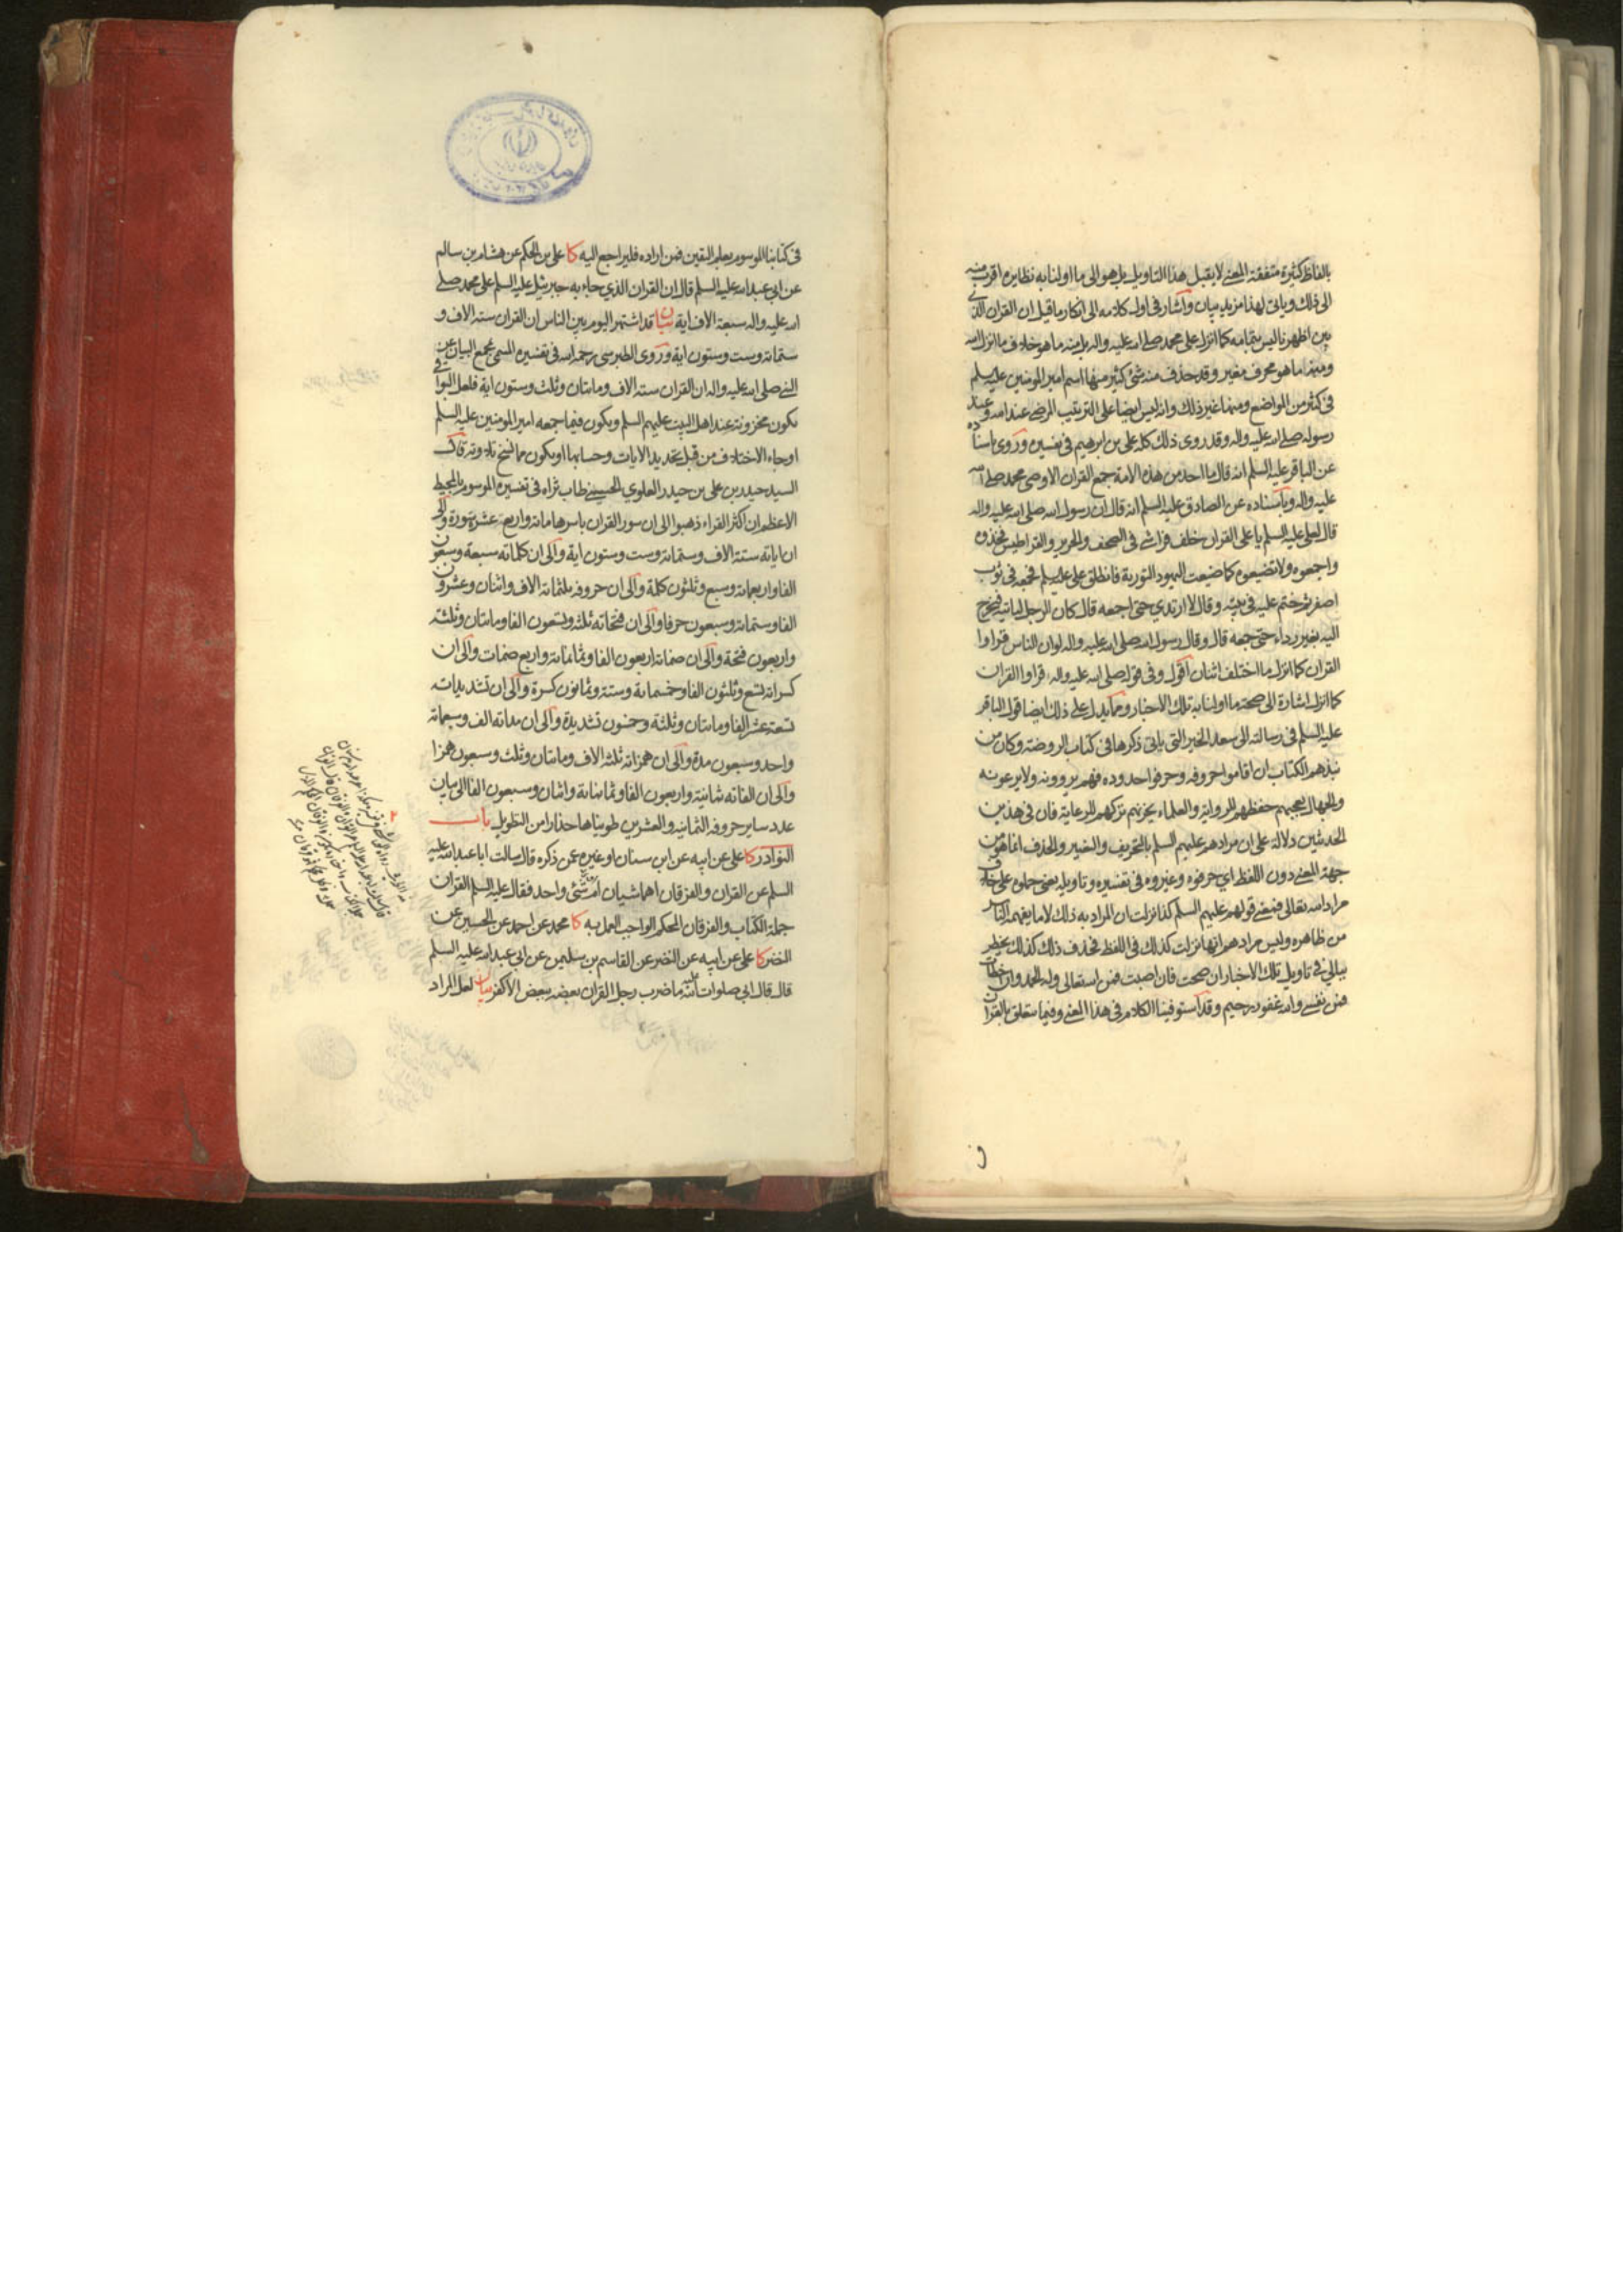 بالفاظ كثيرة متفقة المعنى لا يقبل هذا التاويل بل هو الى ما اولنا به نظايره اقرب منه
الى ذلك وياتى لهذا مزيد بيان واشار فى اول كلامه الى انكار ما قيل ان القران الذى
بين اظهرنا ليس بتمامه كما انزل على محمد صلى الله عليه واله بل منه ما هو خلاف ما انزل الله
ومنه ما هو محرف مغير وقد حذف منه شئ كثير منها اسم امير المومنين عليه السلم
فى كثير من المواضع ومنها غير ذلك وانه ليس ايضا على الترتيب المرضى عند الله وعند
رسوله صلى الله عليه واله وقد روى ذلك كله على بن ابرهيم فى تفسيره وروى باسناده
عن الباقر عليه السلم انه قال ما احد من هذه الامة جمع القران الا وصى محمد صلى الله
عليه واله وباسناده عن الصادق عليه السلم انه قال ان رسول الله صلى الله عليه واله
قال لعلى عليه السلم يا على القران خلف فراشى فى الصحف والحرير والقراطيس فخذوه
واجمعوه ولا تضيعوه كما ضيعت اليهود التورية فانطلق على عليه السلم فجمعه فى ثوب
اصفر ثم ختم عليه فى بيته وقال لا ارتدي حتى اجمعه قال كان الرجل لياتيه فيخرج
اليه بغير رداء حتى جمعه قال وقال رسول الله صلى الله عليه واله لو ان الناس قراوا
القران كما انزل ما اختلف اثنان اقول وفى قوله صلى الله عليه واله قراوا القران
كما انزل اشارة الى صحة ما اولنا به تلك الاخبار ومما يدل على ذلك ايضا قول الباقر
عليه السلم فى رسالته الى سعد الخير التى ياتى ذكرها فى كتاب الروضة وكان من
نبذهم الكتاب ان اقاموا حروفه وحرفوا حدوده فهم يروونه ولا يرعونه
والجهال يعجبهم حفظهم للرواية والعلماء يحزنهم تركهم للرعاية فان فى هذين
الحديثين دلالة على ان مرادهم عليهم السلم بالتحريف والتغيير والحذف انما هو من
جهة المعنى دون اللفظ اي حرفوه وغيروه فى تفسيره وتاويله يعنى حملوه على خلاف
مراد الله تعالى فمعنى قولهم عليهم السلم كذا نزلت ان المراد به ذلك لا ما يفهمه الناس
من ظاهره وليس مرادهم انها نزلت كذلك فى اللفظ فحذف ذلك كذلك يخطر
ببالي فى تاويل تلك الاخبار ان صحت فان اصبت فمن الله تعالى وله الحمد وان اخطات
فمن نفسى والله غفور رحيم وقد استوفينا الكلام فى هذا المعنى وفيما يتعلق بالقران
فى كتابنا الموسوم بعلم اليقين فمن اراده فليراجع اليه كا على بن الحكم عن هشام بن سالم
عن ابى عبد الله عليه السلم قال ان القران الذي جاء به جبرئيل عليه السلم على محمد صلى
الله عليه واله سبعة الاف اية بيان قد اشتهر اليوم بين الناس ان القران ستة الاف و
ستمائة وست وستون اية وروى الطبرسى رحمه الله فى تفسيره المسمى بمجمع البيان عن
النبى صلى الله عليه واله ان القران ستة الاف ومايتان وثلث وستون اية فلعل البواقى
يكون مخزونة عند اهل البيت عليهم السلم ويكون فيما جمعه امير المومنين عليه السلم
او جاء الاختلاف من قبل تحديد الايات وحسابها او يكون مما نسخ تلاوته قال
السيد حيدر بن على بن حيدر العلوي الحسينى طاب ثراه فى تفسيره الموسوم بالمحيط
الاعظم ان اكثر القراء ذهبوا الى ان سور القران باسرها مائة واربع عشرة سورة والى
ان اياته ستة الاف وستمائة وست وستون اية والى ان كلماته سبعة وسبعون
الفا واربعمائة وسبع وثلثون كلمة والى ان حروفه ثلثمائة الاف واثنان وعشرون
الفا وستمائة وسبعون حرفا والى ان فتحاته ثلثه وتسعون الفا ومايتان وثلثة
واربعون فتحة والى ان ضماته اربعون الفا وثمانمائة واربع ضمات والى ان
كسراته تسع وثلثون الفا وخمسمائة وستة وثمانون كسرة والى ان تشديداته
تسعة عشر الفا ومايتان وثلثة وخمسون تشديدة والى ان مداته الف وسبعمائة
واحد وسبعون مدة والى ان همزاته ثلثه الاف ومايتان وثلث وسبعون همزا
والى ان الفاته ثمانية واربعون الفا وثمانمائة واثنان وسبعون الفا الى بيان
عدد ساير حروفه الثمانية والعشرين طويناها حذارا من التطويل باب
النوادر كا على عن ابيه عن ابن سنان او غيره عمن ذكره قال سالت ابا عبد الله عليه
السلم عن القران والفرقان اهما شيئان ام شئى واحد فقال عليه السلم القران
جملة الكتاب والفرقان المحكم الواجب العمل به كا محمد عن احمد عن الحسين عن
النضر كا على عن ابيه عن النضر عن القاسم بن سليمن عن ابى عبد الله عليه السلم
قال قال ابى صلوات الله عليه ما ضرب رجل القران بعضه ببعض الا كفر بيان لعل المراد